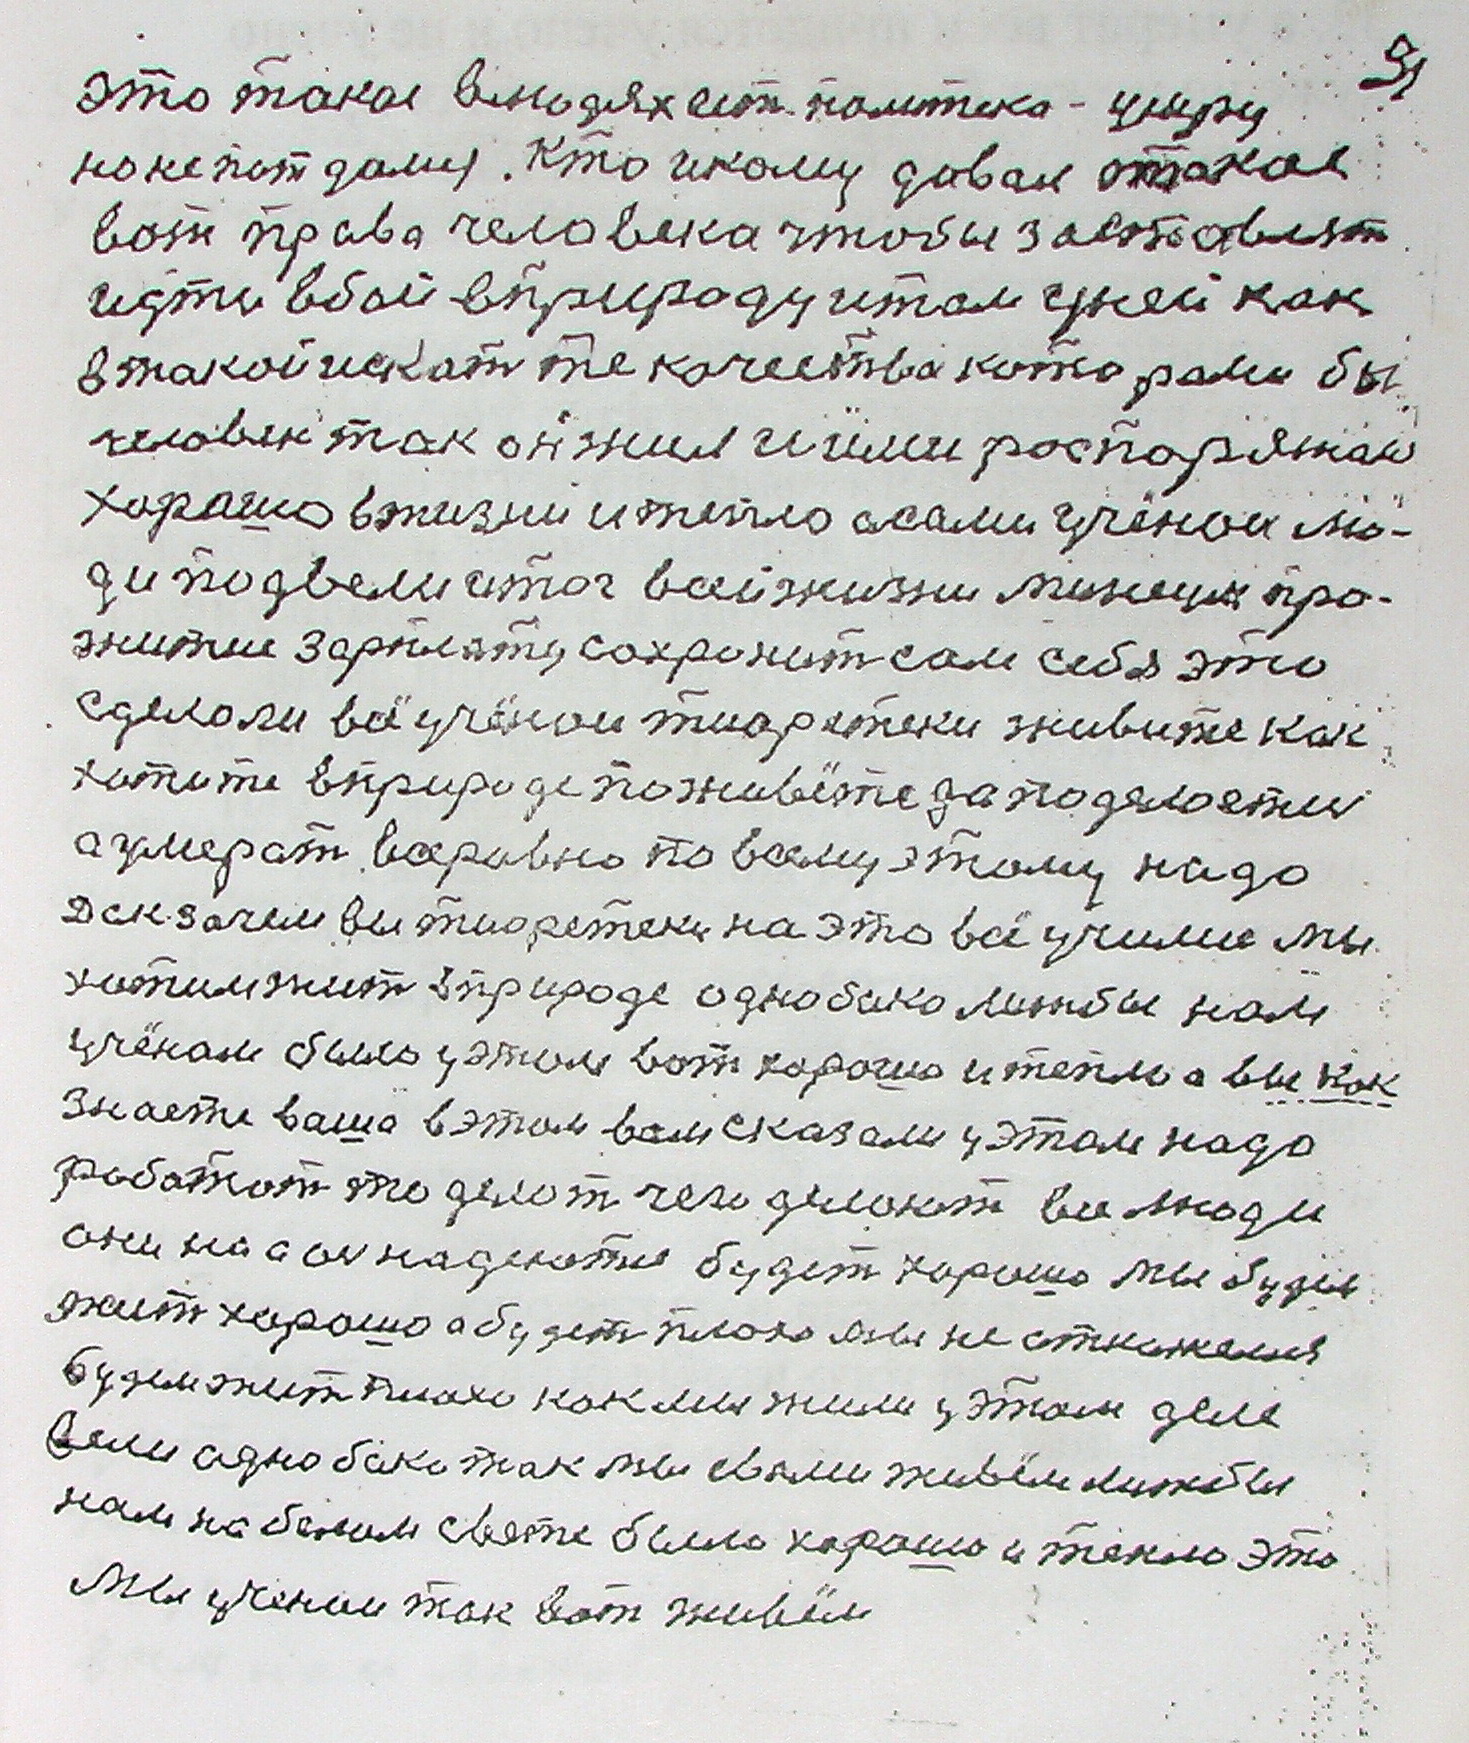 91
это такае влюдях ест. политека - умру
но непотдамся. Кто икому давал отакое
вот права человека чтобы заставлят
идти вбой вприроду итам уней как
втакой искат те качества которами бы
человек так он жил и ими роспоряжал
хорошо вжизни итепло асами учёнои лю-
ди подвели итог всей жизни минеця про-
житие зарплату сохронит сам себя это
сделоли всё учёнои тиоретеки живите как
хотите вприроде поживёте даподелоетись
аумерат всеравно по всему этому надо
Дак зачем вы тиоретеки на это всё учились мы
хотим жит вприроде однобако лижбы нам
учёнам было уэтом вот хорошо итепло а вы как
знаете ваша вэтом вам сказали уэтом надо
работат то делат чего делают все люди
они на а си надеются будет хорошо мы будем
жит хорошо абудет плохо мы не откажемся
будем жит плохо как мы жили уэтом деле
вели аднобако так мы свами живём лижбы
нам на белом свете было хорошо и тепло это
мы ученои так вот живём